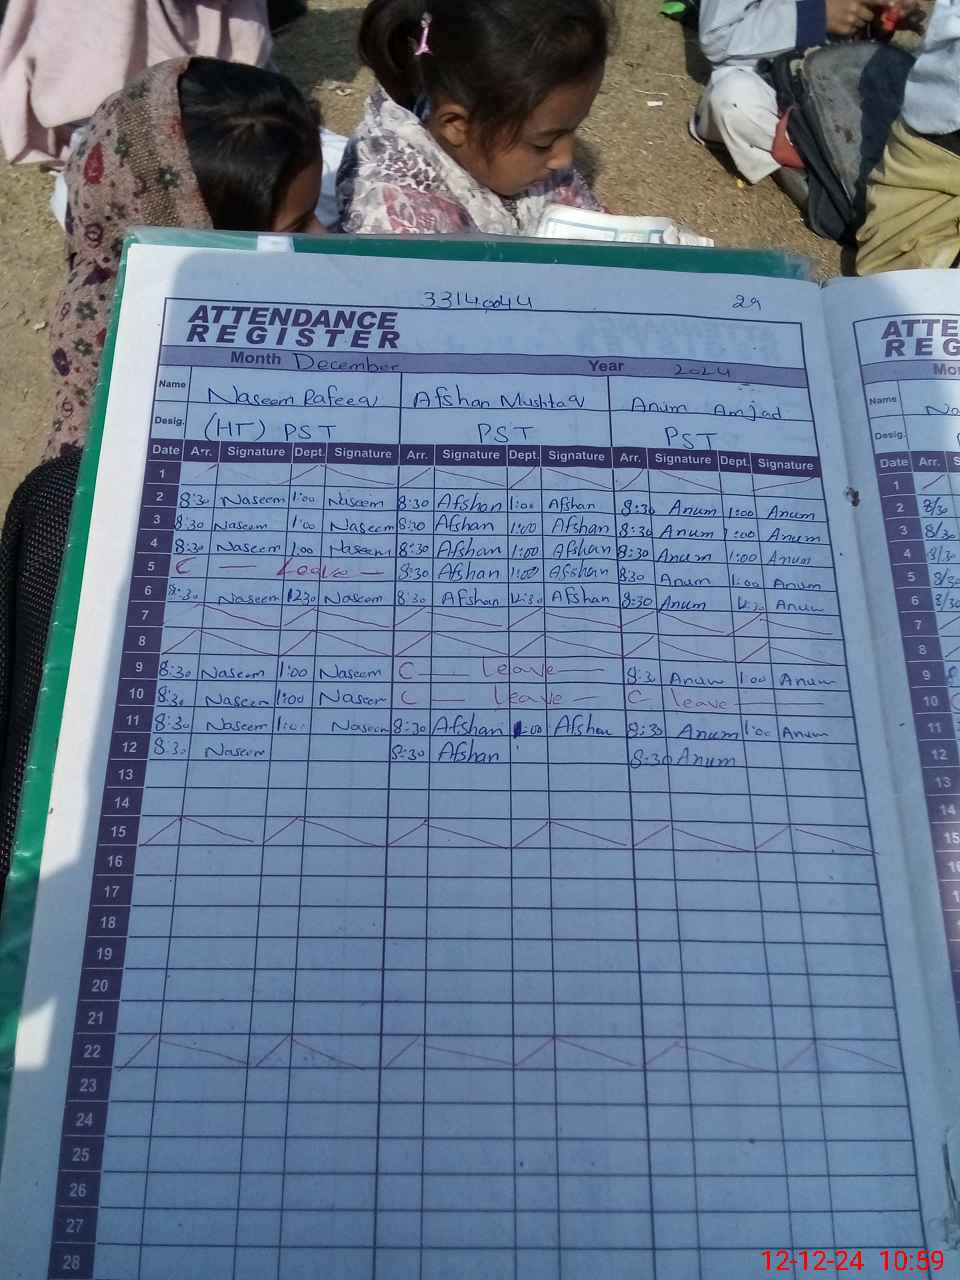 33140044 29
ATTENDANCE
REGISTER
Month December Year 2024
Name Naseem Rafeeq Afshan Mushtaq Anum Amjad
Desig. (HT) PST PST PST
Date Arr. Signature Dept. Signature Arr. Signature Dept. Signature Arr. Signature Dept. Signature
1
2 8:30 Naseem 1:00 Naseem 8:30 Afshan 1:00 Afshan 8:30 Anum 1:00 Anum
3 8:30 Naseem 1:00 Naseem 8:30 Afshan 1:00 Afshan 8:30 Anum 1:00 Anum
4 8:30 Naseem 1:00 Naseem 8:30 Afshan 1:00 Afshan 8:30 Anum 1:00 Anum
5 C — Leave — 8:30 Afshan 1:00 Afshan 8:30 Anum 1:00 Anum
6 8:30 Naseem 12:30 Naseem 8:30 Afshan 12:30 Afshan 8:30 Anum 12:30 Anum
7
8
9 8:30 Naseem 1:00 Naseem C — Leave — 8:30 Anum 1:00 Anum
10 8:30 Naseem 1:00 Naseem C — Leave — C leave —
11 8:30 Naseem 1:00 Naseem 8:30 Afshan 1:00 Afshan 8:30 Anum 1:00 Anum
12 8:30 Naseem 8:30 Afshan 8:30 Anum
13
14
15
16
17
18
19
20
21
22
23
24
25
26
27
28
ATTE
REG
Name
Desig.
Date Arr.
1
2 8/30
3 8/30
4 8/30
5 8/30
6 8/30
7
8
9
10
11
12
13
14
15
12-12-24 10:59